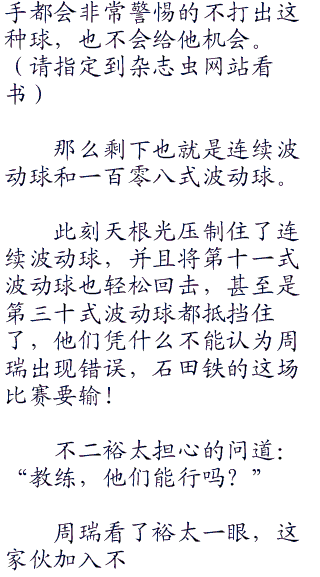 手都会非常警惕的不打出这
种球，也不会给他机会。
（请指定到杂志虫网站看
书）
那么剩下也就是连续波
动球和一百零八式波动球。
此刻天根光压制住了连
续波动球，并且将第十一式
波动球也轻松回击，甚至是
第三十式波动球都抵挡住
了，他们凭什么不能认为周
瑞出现错误，石田铁的这场
比赛要输！
不二裕太担心的问道：
“教练，他们能行吗？”
周瑞看了裕太一眼，这
家伙加入不